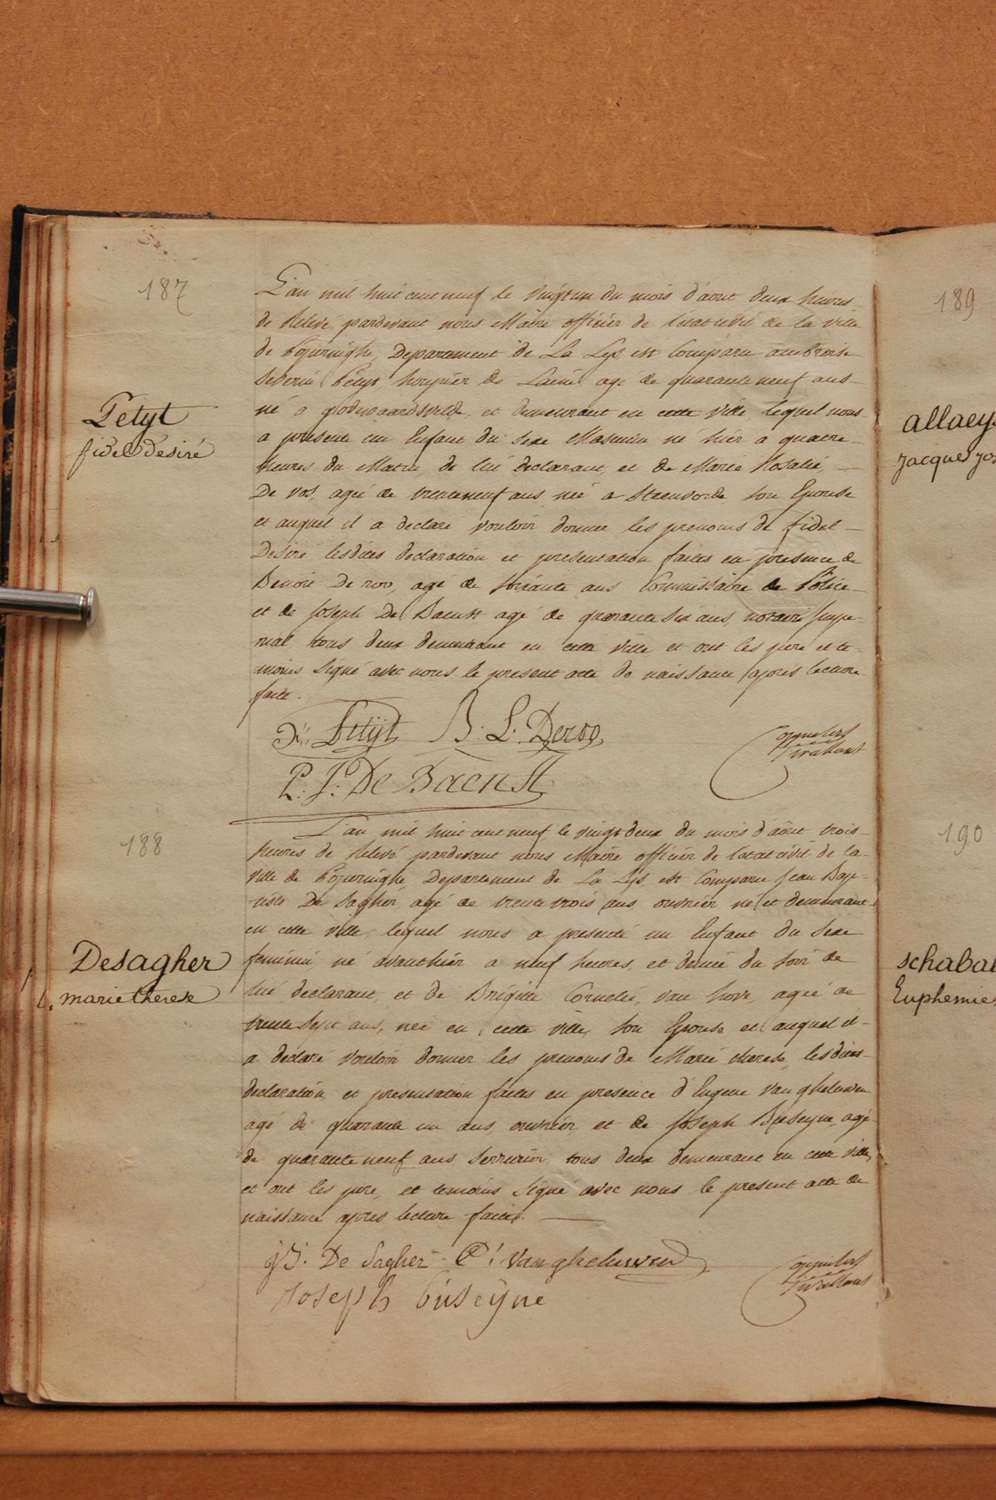 187
Petyt
fidel Désiré
L'an mil huit cent neuf le vingt un du mois d'aout deux heures
de Relevé pardevant nous Maire officier de L'etat civil de la ville
de Poperinghe, Departement de La Lys est Comparu ambroise
Severin Petyt houpier de Laine agé de quarante neuf ans
né a godewaardsvelde et demeurant en cette ville lequel nous
a presenté un Enfant du Sexe Masculin né hier a quatre
heures du Matin de lui declarant et de Marie Rosalie
De vos, agée de trente neuf ans née a Steenvorde son Epouse
et auquel il a declaré vouloir donner les prenoms de fidel
Desiré lesdites declaration et presentation faites en presence de
Benoit De roo, agé de soixante ans Commissaire de Police
et de Joseph De Baenst agé de quarante six ans notaire Impe-
rial tous deux demeurant en cette ville et ont les pere et te-
moins signé avec nous le present acte de naissance après lecture
faite.
Petijt B. L. Deroo
P. J. De Baenst
188
Desagher
marie therese
L'an mil huit cent neuf le vingt deux du mois d'aôut trois
heures de Relevé pardevant nous Maire officier de l'etat civil de la
ville de Poperinghe Departement de La Lys est Comparu Jean Bap-
tiste De Sagher agé de trente trois ans ouvrier né et demeurant
en cette ville lequel nous a presenté un Enfant du Sexe
feminin né avanthier a neuf heures et demie du soir de
lui declarant, et de Brigitte Cornelie, van hove agée de
trente sept ans, née en cette ville, son Epouse et auquel il
a declaré vouloir donner les prenoms de Marie therese, lesdites
declaration et presentation faites en presence d'Eugene van gheluwen
agé de quarante un ans ouvrier et de Joseph Buseyne, agé
de quarante neuf ans serrurier, tous deux demeurant en cette ville,
et ont les pere, et temoins signé avec nous le present acte de
naissance après lecture faite.
JB. De Sagher vangheluwen
Joseph buseyne
189
allaeys
jacques jos
190
schabal
Euphemie